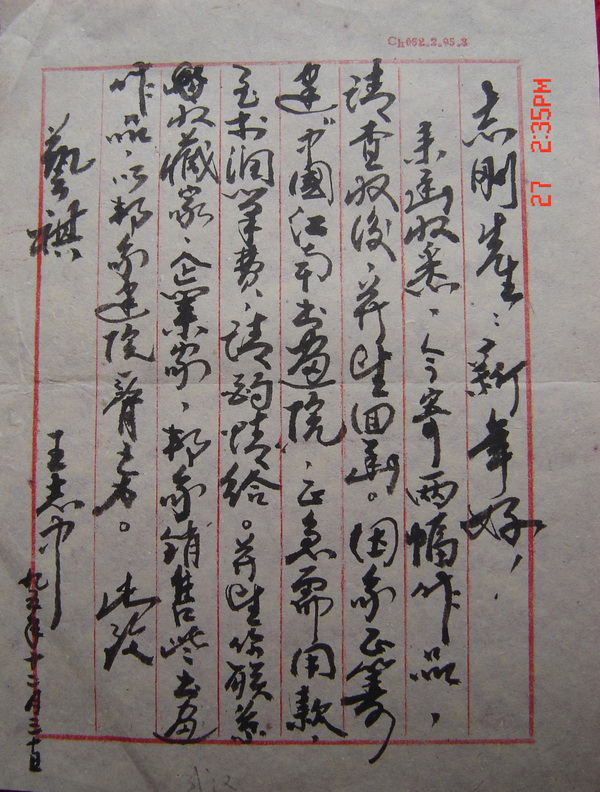 Ch062.2.95.3
27 2:35PM
志刚先生：新年好，
来函收悉，今寄两幅作品，
请查收后，并望回函。因我正筹
建中国江南书画院，正急需用款，
至于润笔费，请酌情给。并望你联系
收藏家、企业家，帮我销售些书画
作品，以帮我建院。此致
艺祺
王志中
九五年十二月三十日